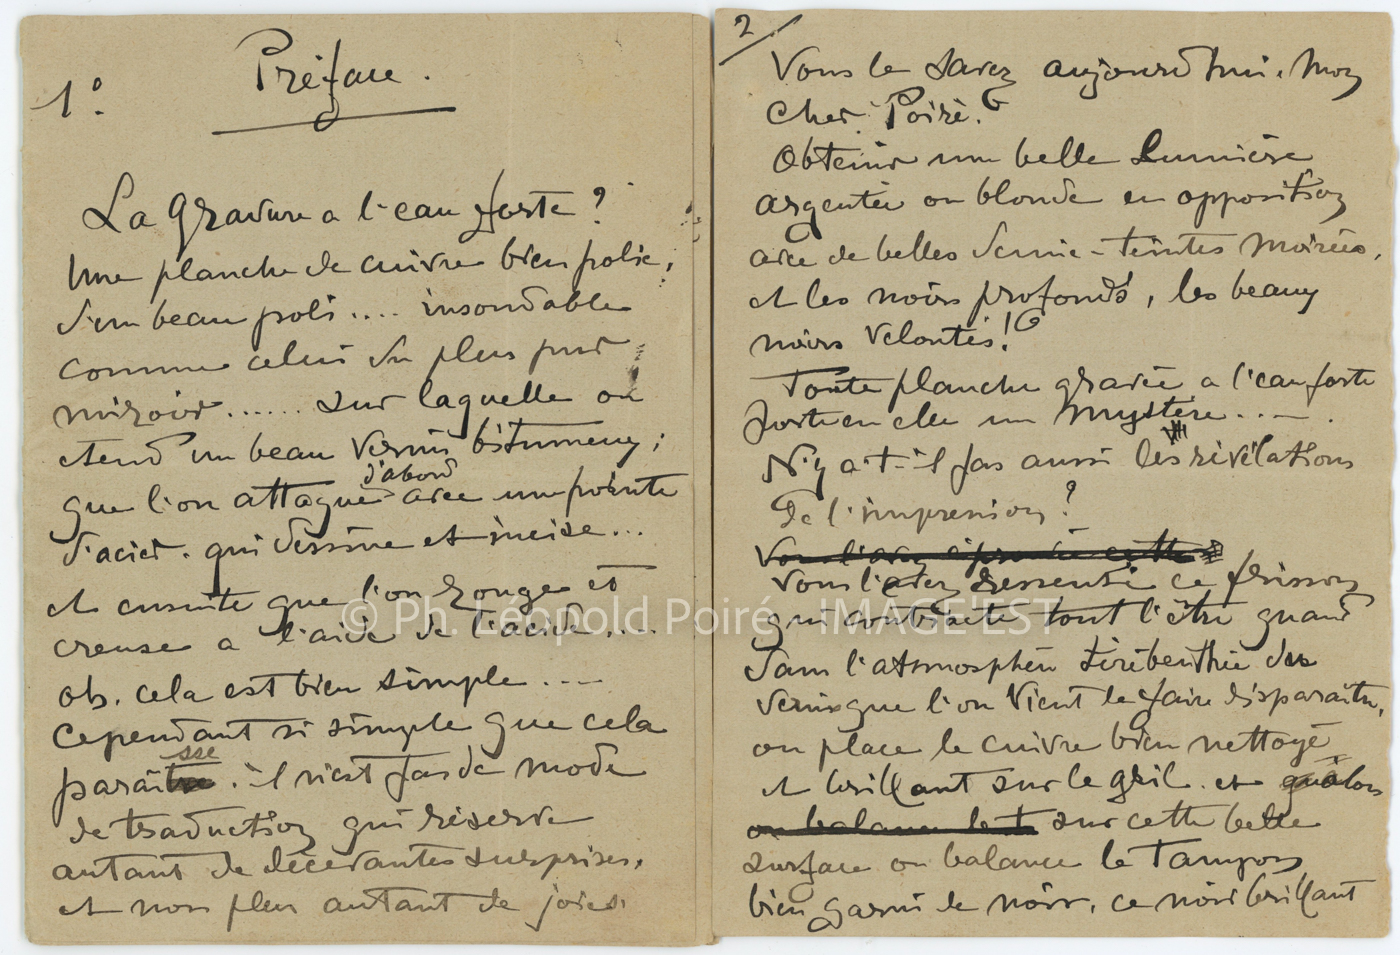 1°.
Préface.
La gravure a l'eau forte ?
Une planche de cuivre bien polie,
d'un beau poli .... insondable
comme celui du plus pur
miroir ...... sur laquelle on
etend un beau vernis bitumeux ;
d'abord
que l'on attaque avec une pointe
d'acier. qui dessine et incise ...
et ensuite que l'on ronge et
creuse a l'aide de l'acide ....
oh. cela est bien simple ....
Cependant si simple que cela
sse
parai . il n'est pas de mode
de traduction qui réserve
autant de décevantes surprises.
et non plus autant de joies.
2
Vous le savez aujourd'hui. Mon
cher Poiré.
Obtenir une belle lumière
argentée ou blonde en opposition
avec de belles demie-teintes moirées,
et les noirs profonds, les beaux
noirs veloutés !
Toute planche gravée a l'eau forte
porte en elle un mystère ....
N'y a-t-il pas aussi les révélations
de l'impression ?
Vous l'avez cette
Vous l'avez ressenti ce frisson
qui tout l'être quand
dans l'atmosphère térébenthinée des
vernis que l'on vient de faire disparaitre,
on place le cuivre bien nettoyé
et brillant sur le gril. et alors
on balance le t sur cette belle
surface on balance le Tampon
bien garni de noir, ce noir brillant
© Ph. Léopold Poiré - IMAGE'EST